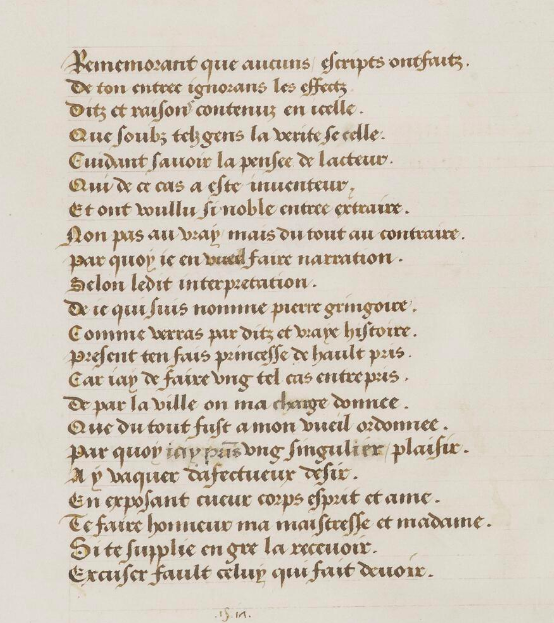 Rememorant que aucuns escripts ont faitz.
De ton entree ignorans les effectz
Ditz et raison contenuz en icelle.
Que soubz telz gens la verite se celle.
Cuidant savoir la pensee de lacteur.
Qui de ce cas a este inventeur.
Et ont voullu si noble entree extraire.
Non pas au vray mais du tout au contraire.
Par quoy ie en vueil faire narration.
Selon ledit interpretation.
De ie qui suis nomme pierre gringoire.
Comme verras par ditz et vraye histoire.
Present ten fais princesse de hault pris.
Car iay de faire vng tel cas entrepris.
De par la ville on ma charge donnee.
Que du tout fust a mon vueil ordonnee.
Par quoy iay pris vng singulier plaisir.
A y vaquer dafectueux desir.
En exposant cueur corps esprit et ame.
Te faire honneur ma maistresse et madame.
Si te supplie en gre la recevoir.
Excuser fault celuy qui fait devoir.